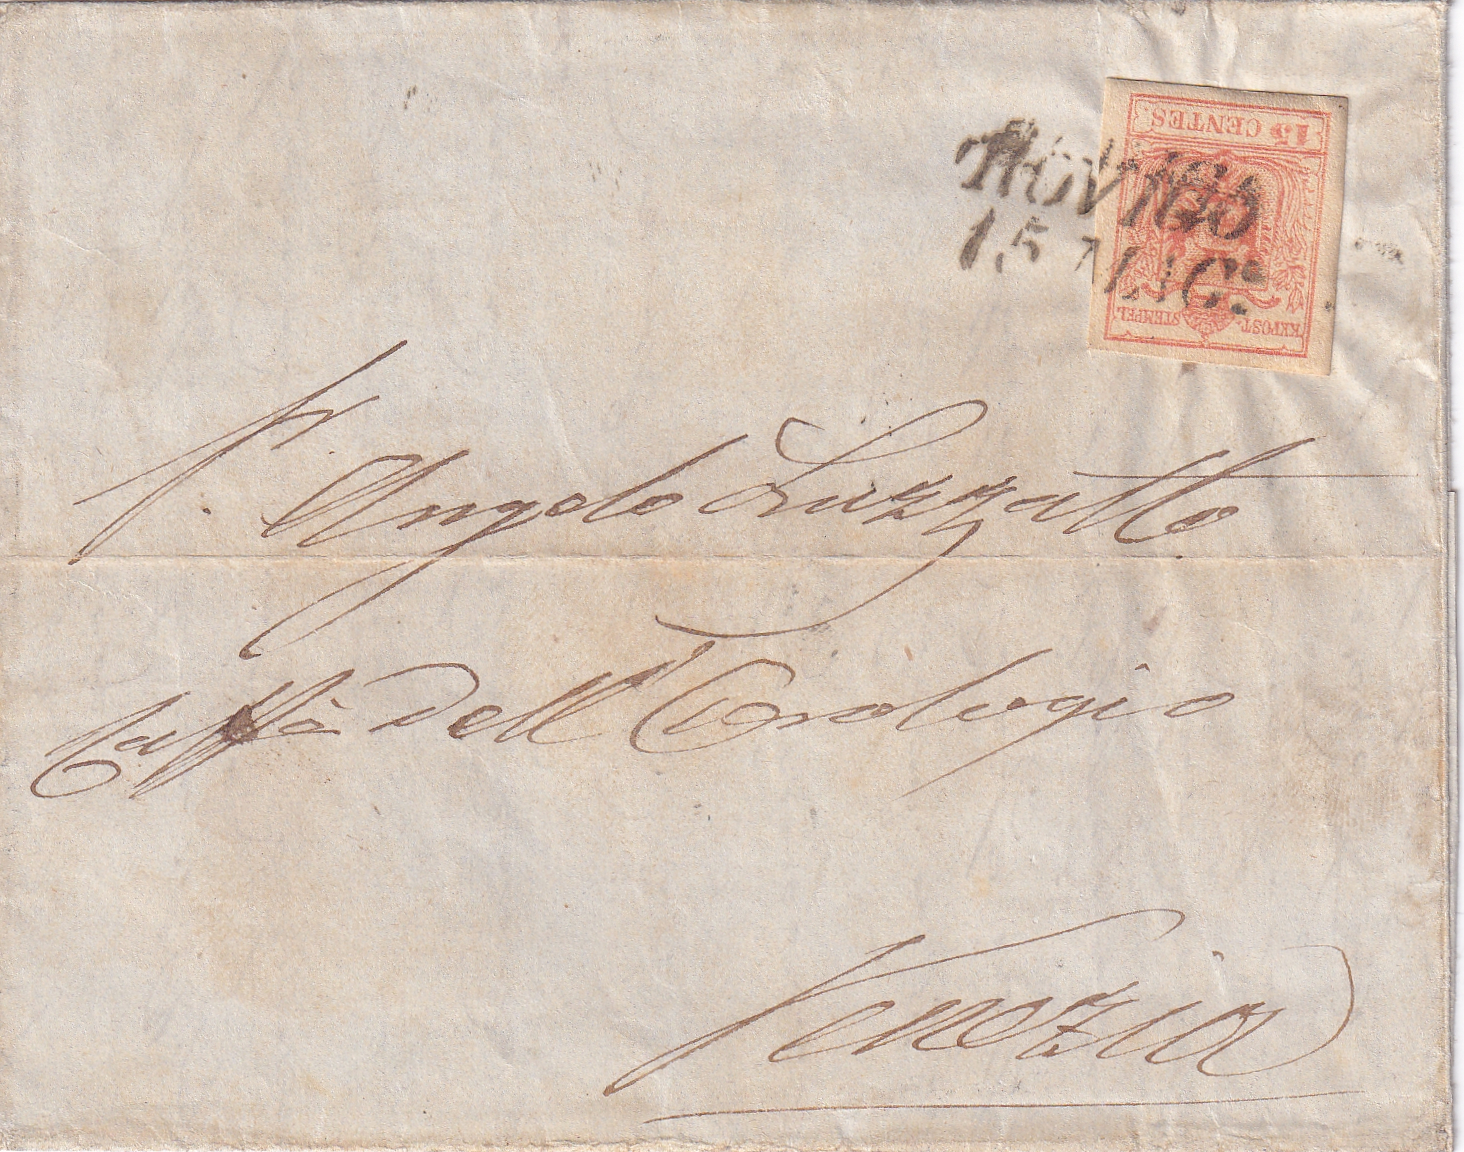 15 CENTES.
KKPOST-STEMPEL
ROVIGO
15 MAGG.
Sr. Angelo Luzzatto
Caffè dell'Orologio
Venezia